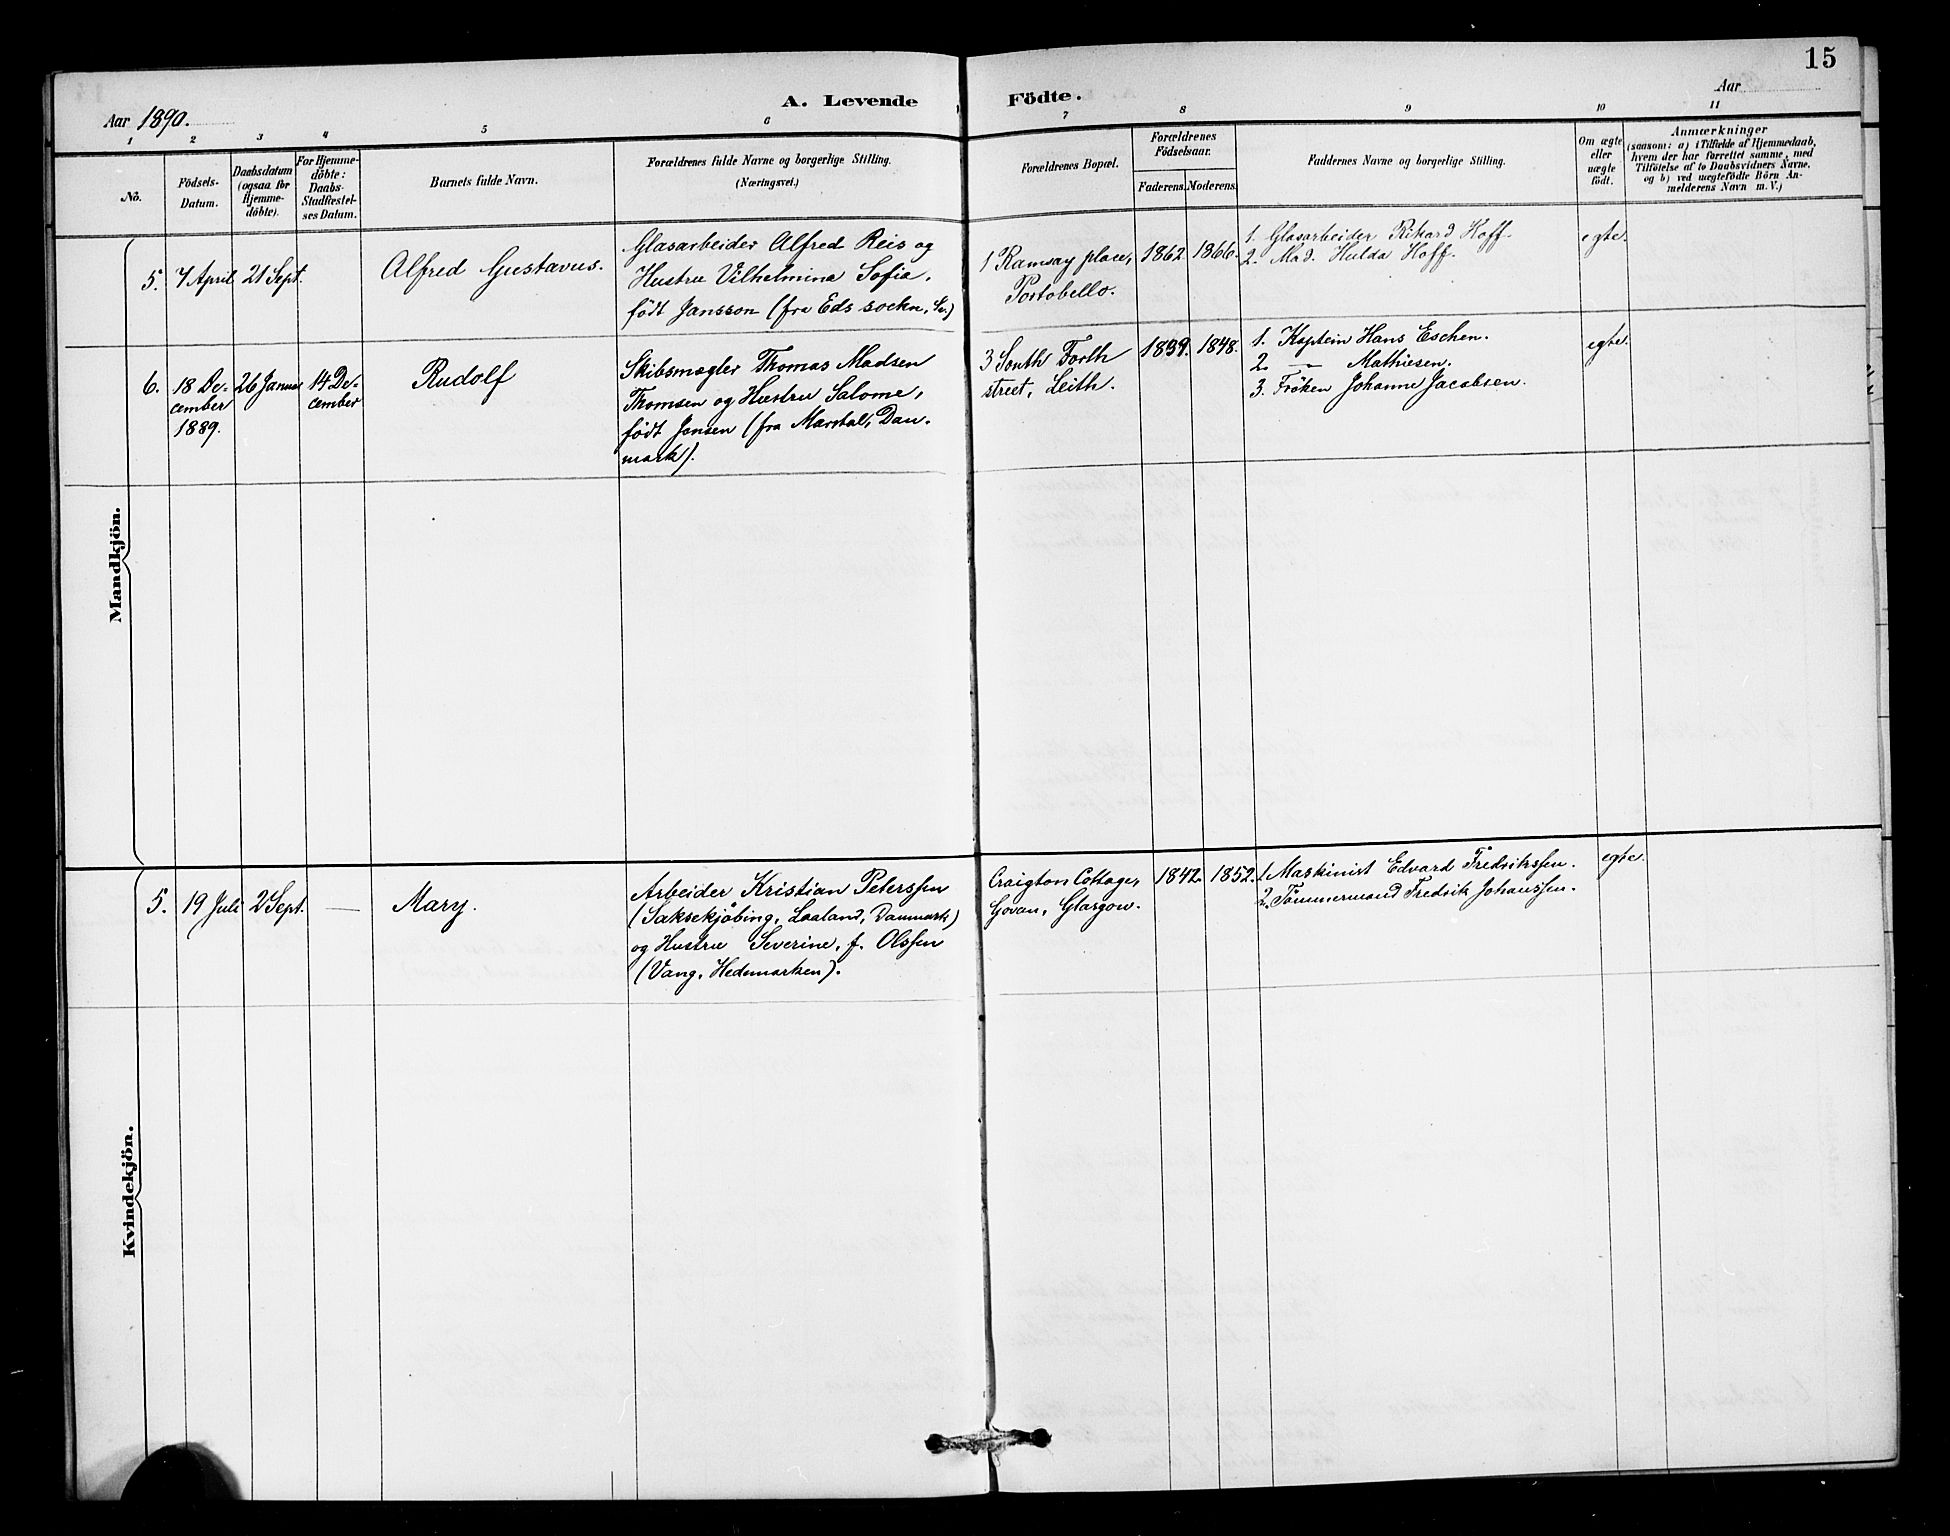 15
Aar 1890.
A. Levende Födte.
Aar
1 2 3 4 5 6 7 8 9 10 11
No.
Födsels-
Datum.
Daabsdatum
(ogsaa for
Hjemme-
döbte).
For Hjemme-
döbte:
Daabs-
Stadfæstel-
ses Datum.
Barnets fulde Navn.
Forældrenes fulde Navne og borgerlige Stilling.
(Næringsvei.)
Forældrenes Bopæl.
Forældrenes
Födselsaar.
Faderens. Moderens.
Faddernes Navne og borgerlige Stilling.
Om ægte
eller
uægte
födt.
Anmærkninger
(saasom: a) i Tilfælde af Hjemmedaab,
hvem der har forrettet samme, med
Tilföielse af to Daabsvidners Navne,
og b) ved uægtefödte Börn An-
melderens Navn m. V.)
Mandkjön.
5. 7 April 21 Sept. Alfred Gustavus.
Glasarbeider Alfred Reis og
Hustru Vilhelmina Sofia,
født Jansson (fra Eds sockn, Sv.)
1 Ramsay place,
Portobello.
1862. 1866.
1. Glasarbeider Rikard Hoff.
2. Mad. Hulda Hoff.
egte.
6. 18 De-
cember
1889.
26 Januar
14 De-
cember
Rudolf
Skibsmægler Thomas Madsen
Thomsen og Hustru Salome,
født Jensen (fra Marstal, Dan-
mark).
3 South Forth
street, Leith.
1839. 1848.
1. Kaptein Hans Eschen.
2. — Mathiesen.
3. Frøken Johanne Jacobsen.
egte.
Kvindekjön.
5. 19 Juli 2 Sept. — Mary.
Arbeider Kristian Peterssen
(Saksekjøbing, Laaland, Danmark)
og Hustru Severine, f. Olssen
(Vang, Hedemarken).
Craigton Cottage,
Govan, Glasgow.
1842. 1852.
1. Maskinist Edvard Fredrikssen.
2. Tømmermand Fredrik Johanssen.
egte.